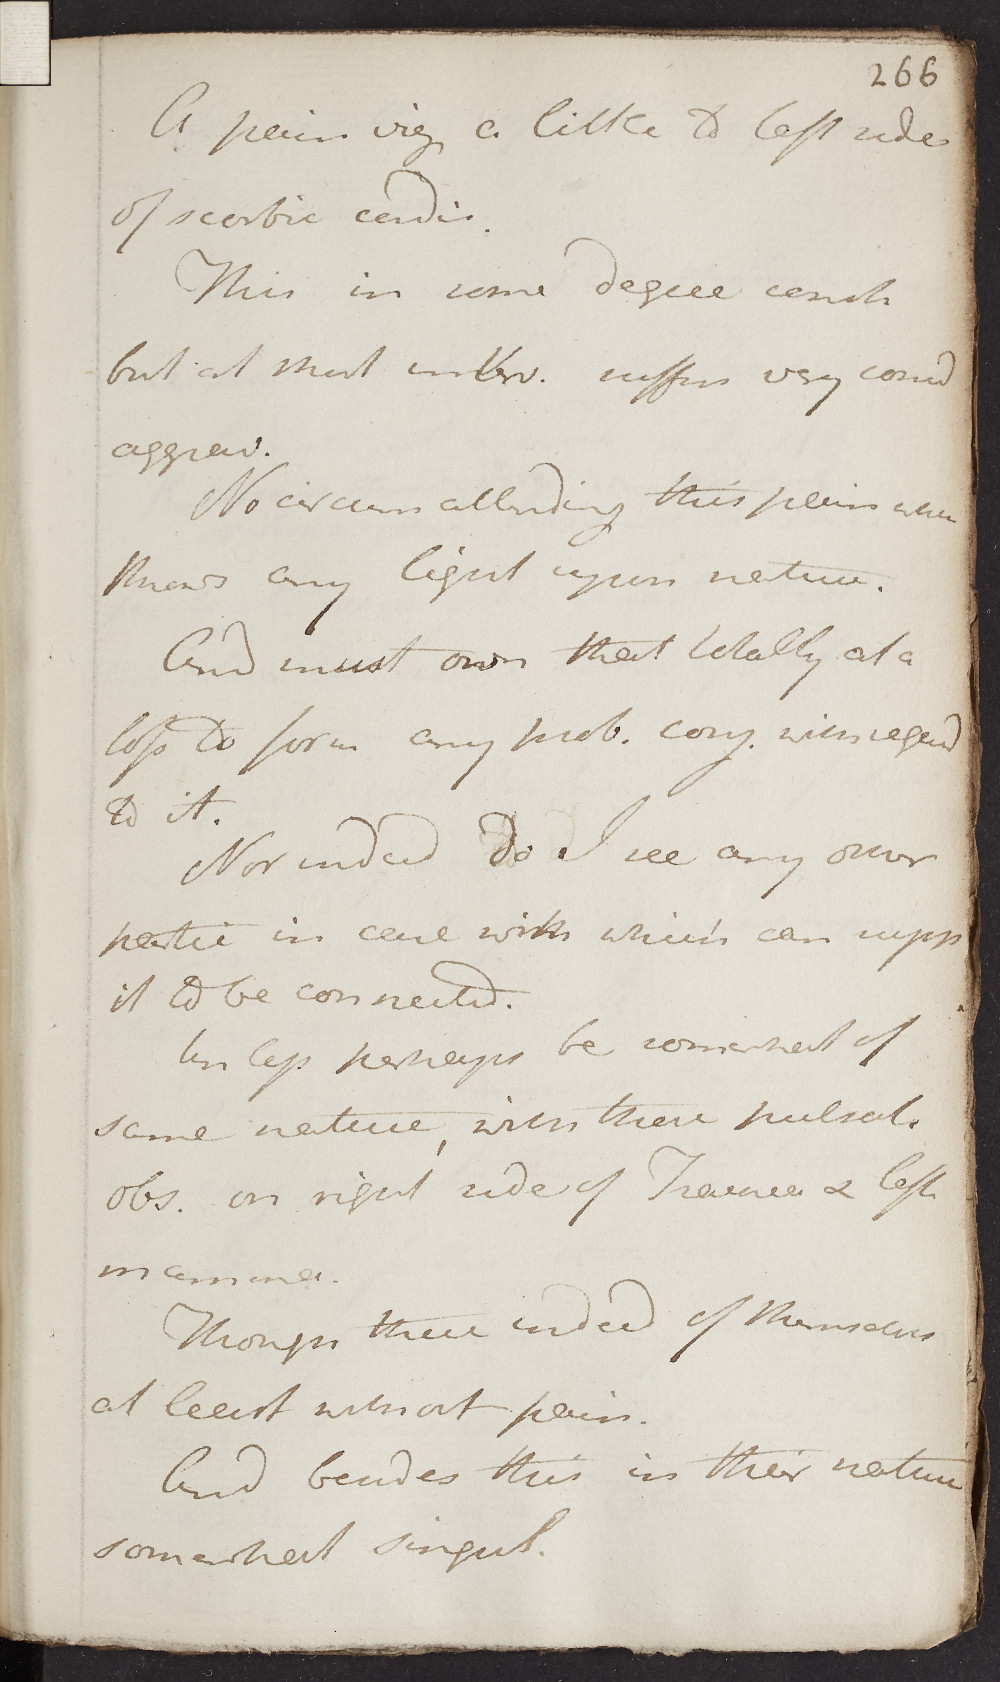 266
A pain viz a little to left side
of scorbic cordis.
This in some degree const
but at that interv. suffers very consid
aggrav.
No circum attending this pain when
throws any light upon nature.
And must own that totally at a
loss to form any prob. conj. with regard
to it.
Nor indeed do I see any other
partic in case with which can supp
it to be connected.
Unless perhaps be somewhat of
same nature, with these pulsat.
obs. on right side of Trachea & left
mamma.
Though these indeed of themselves
at least without pain.
And besides this in their nature
somewhat singul.